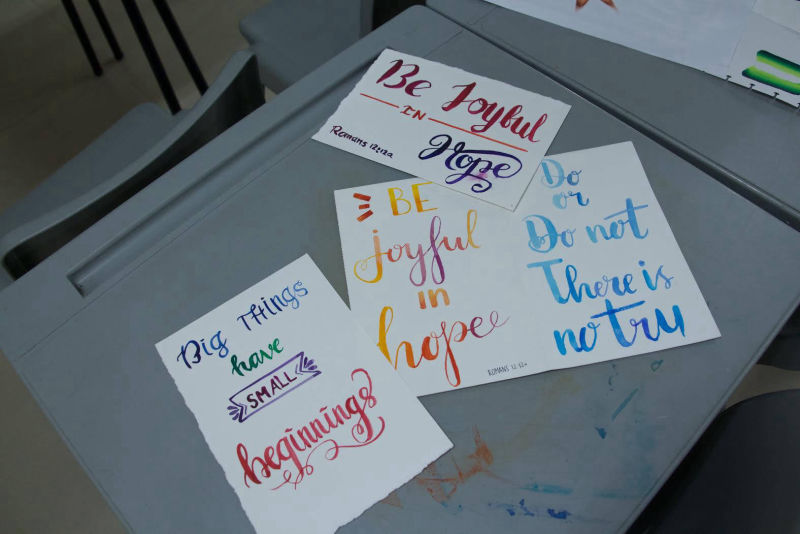 Be Joyful
IN
Hope
Romans 12:12a
BE
joyful
in
hope
ROMANS 12:12a
Do
or
Do not
There is
no try
Big Things
have
SMALL
beginnings